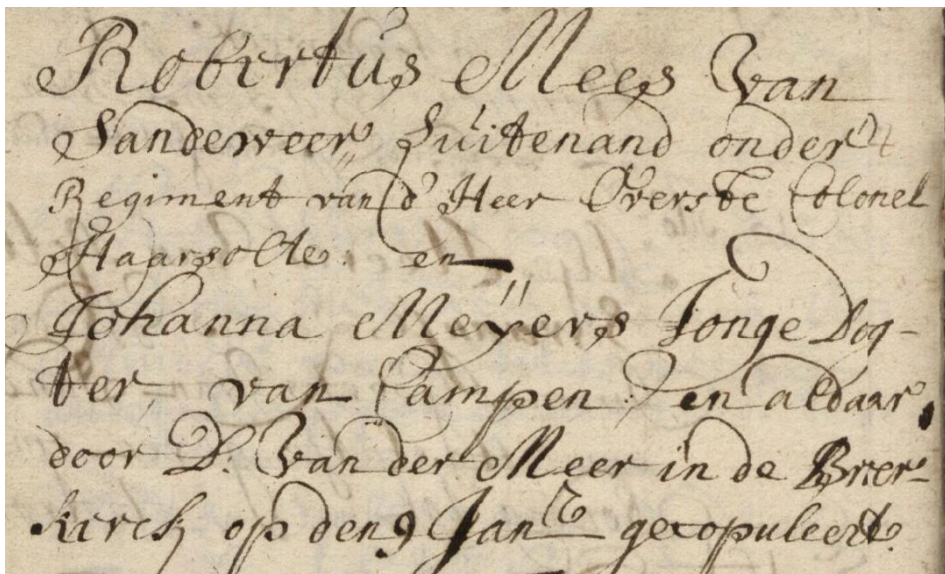 Robertus Mees Van
Sandeweer, Luitenand onder 't
Regiment van d' Heer Overste Colonel
Haarsolte en
Johanna Meÿers Jonge Dog-
ter, van Campen en aldaar,
door D. Van der Meer in de Broer-
kirck op den 9 Jan gecopuleert.